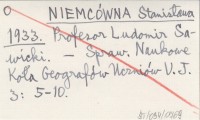 O NIEMCÓWNA Stanisława
1933. Profesor Ludomir Sa-
wicki. — Spraw. Naukowe
Koła Geografów Uczniów U.J.
3: 5-10.